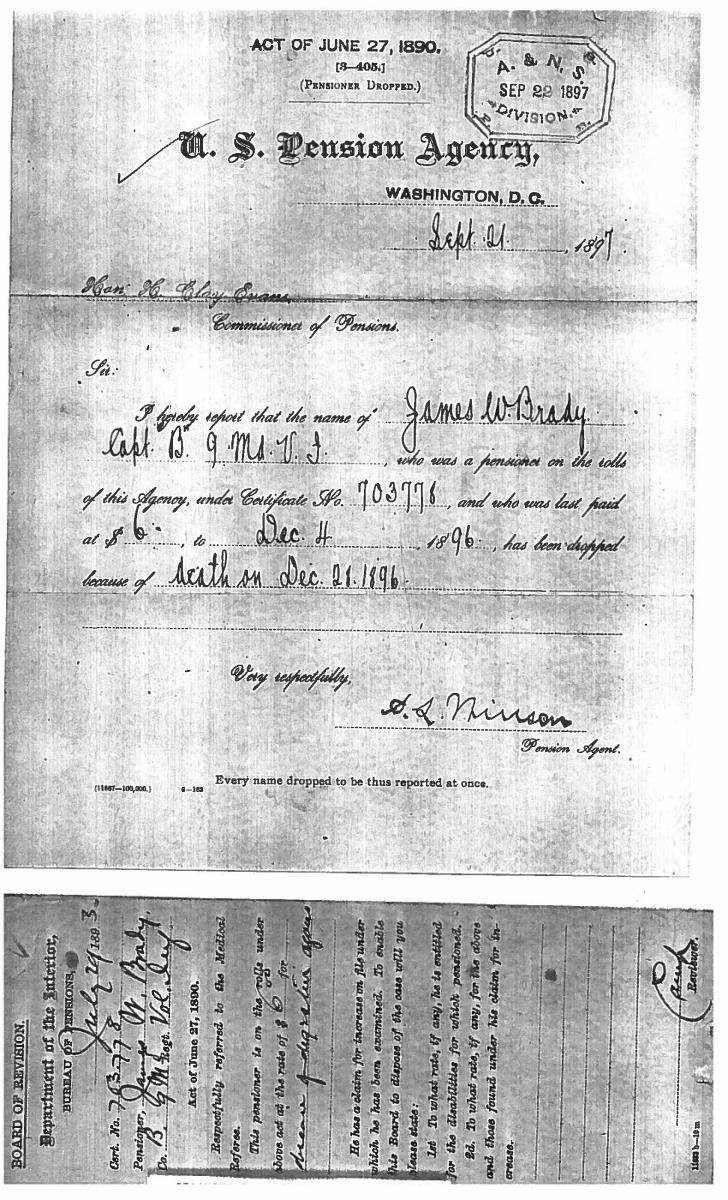 ACT OF JUNE 27, 1890.
[3—405.]
(PENSIONER DROPPED.)
A. & N. S.
SEP 22 1897
DIVISION.
U. S. Pension Agency,
WASHINGTON, D. C.
Sept. 21, 1897
Hon. H. Clay Evans,
Commissioner of Pensions.
Sir:
I hereby report that the name of James W Brady
Capt. "B" 9 Md. V. I., who was a pensioner on the rolls
of this Agency, under Certificate No. 703778, and who was last paid
at $6-, to Dec. 4, 1896, has been dropped
because of death on Dec. 21. 1896
Very respectfully,
Pension Agent.
Every name dropped to be thus reported at once.
(11867—100,000.) 6—163
BOARD OF REVISION.
Department of the Interior,
BUREAU OF PENSIONS,
July 29, 1893.
Cert. No. 703778
Pensioner, James W. Brady
Co. B 9 Md Regt. Vol. Inf
Act of June 27, 1890.
Respectfully referred to the Medical
Referee.
This pensioner is on the rolls under
above act at the rate of $6 for
disease of digestive
He has a claim for increase on file under
which he has been examined. To enable
this Board to dispose of the case will you
please state:
1st To what rate, if any, he is entitled
for the disabilities for which pensioned.
2d. To what rate, if any, for the above
and those found under his claim for in-
crease.
Reviewer.